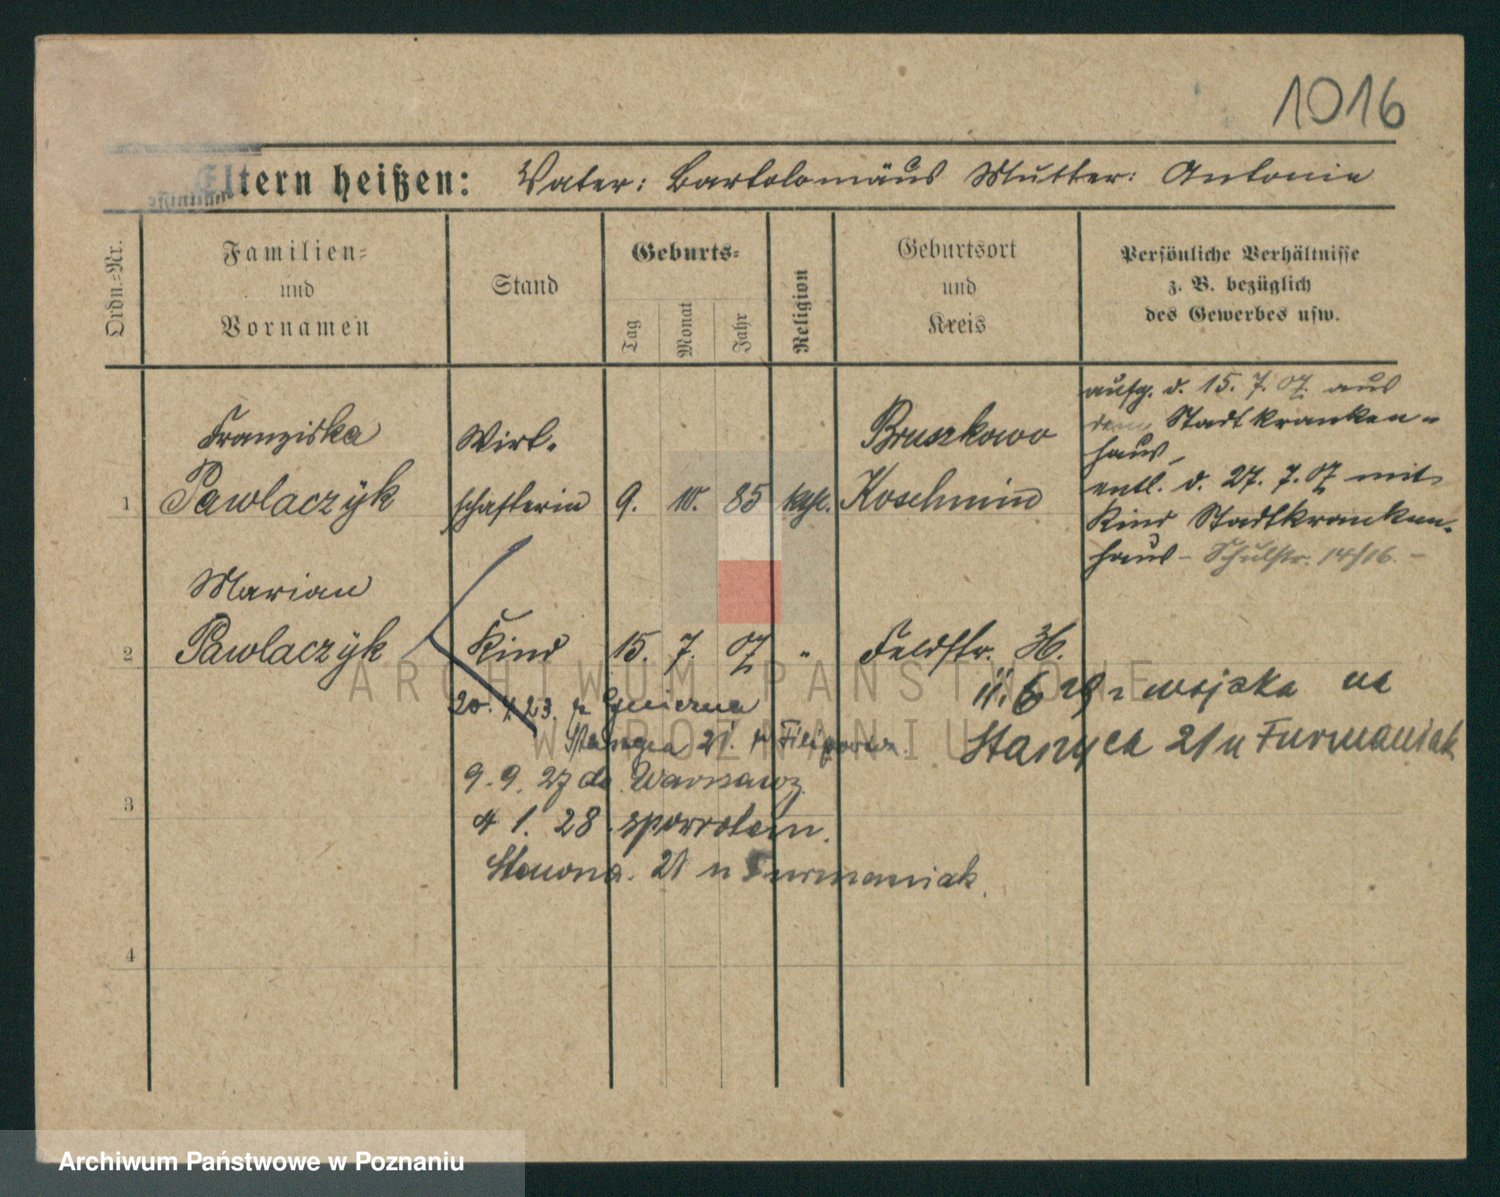 1016
Eltern heißen: Vater: Bartolomäus Mutter: Antonie
Ordn.-Nr.
Familien-
und
Vornamen
Stand
Geburts-
Tag
Monat
Jahr
Religion
Geburtsort
und
Kreis
Persönliche Verhältnisse
z. B. bezüglich
des Gewerbes usw.
1
Franziska
Pawlaczÿk
Wirt-
schafterin
9. 10. 85 kath.
Bruszkowo
Koschmin
aufg. d. 15. 7. 07. aus
dem Stadtkranken-
haus,
entl. d. 27. 7. 07 mit
Kind Stadtkranken-
haus - Schulstr. 14/16. -
2
Marian
Pawlaczÿk
Kind
15. 7. 07 "
Feldstr. 36.
20. 4. 23. z
9. 9. 27 do Warszawy
4 1. 28 spowrotem.
21 u Furmaniak.
z wojska na
21 u Furmaniak
3
4
ARCHIWUM PAŃSTWOWE
W POZNANIU
Archiwum Państwowe w Poznaniu